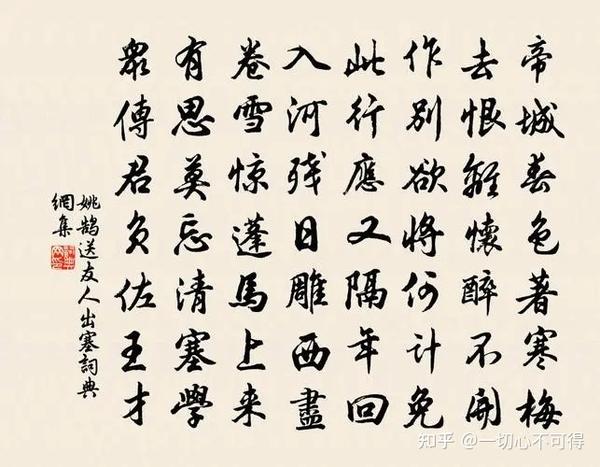 帝城春色著寒梅
去恨離懷醉不開
作别欲將何计免
此行應又隔年回
入河残日雕西盡
卷雪惊蓬馬上来
有思莫忘清塞學
衆傳君负佐王才
姚鹄送友人出塞詞典
網集
知乎 @一切心不可得